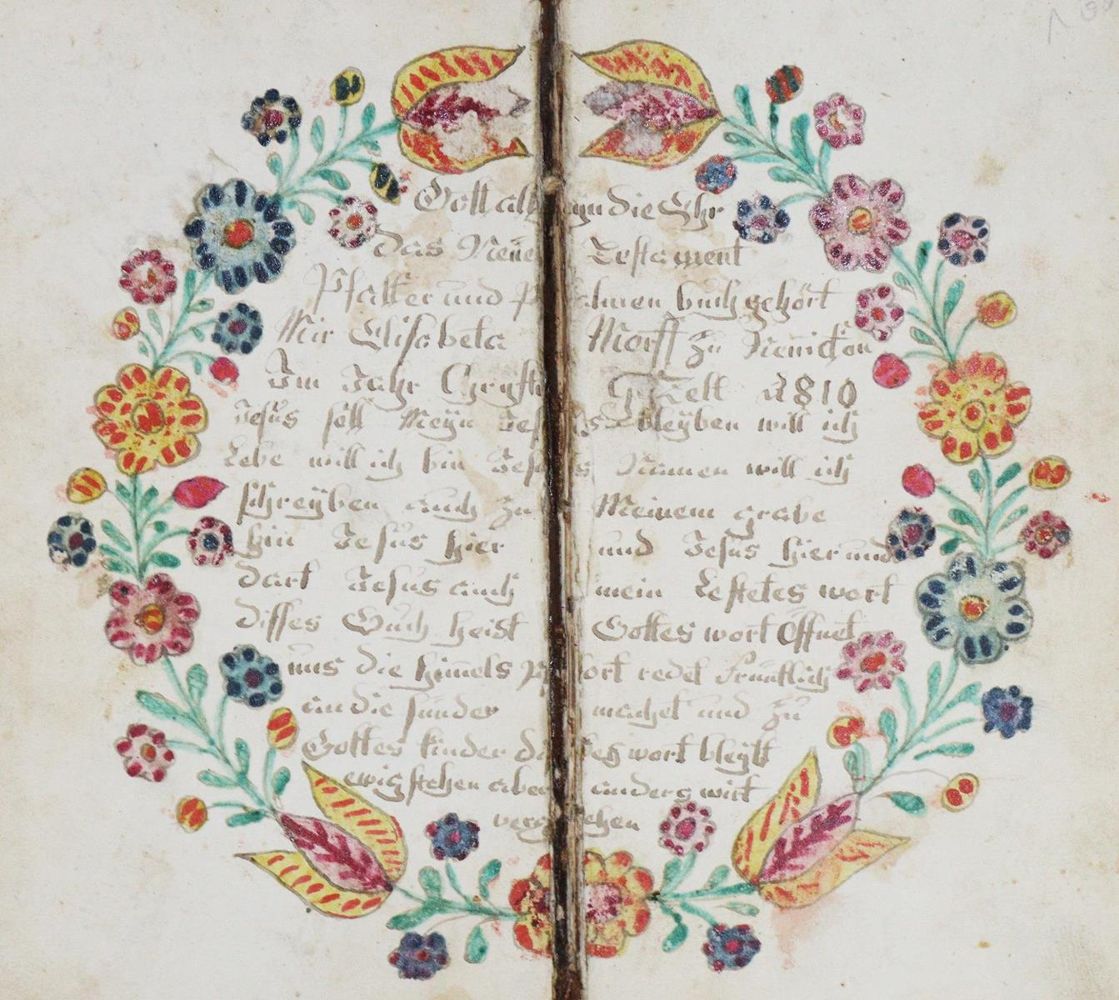 Gott alleyn die Ehr
Das Neüe Testament
Psalter und Psalmen buch gehört
Mir Elisabeta Morff zu
Im Jahr Chryste Gezelt 1810
Jesus soll Meyn Jesus bleyben will ich
Lebe will ich bin Jesus Namen will ich
schreyben auch zu Meinem grabe
hin Jesus hier und Jesus hier und
dart Jesus auch mein Lestetes wort
disses Buch heist Gottes wort Öffnet
uns die himels redet
an die sünder machet und zu
Gottes kinder wort bleybt
ewig stehen aber anders wirt
vergehen